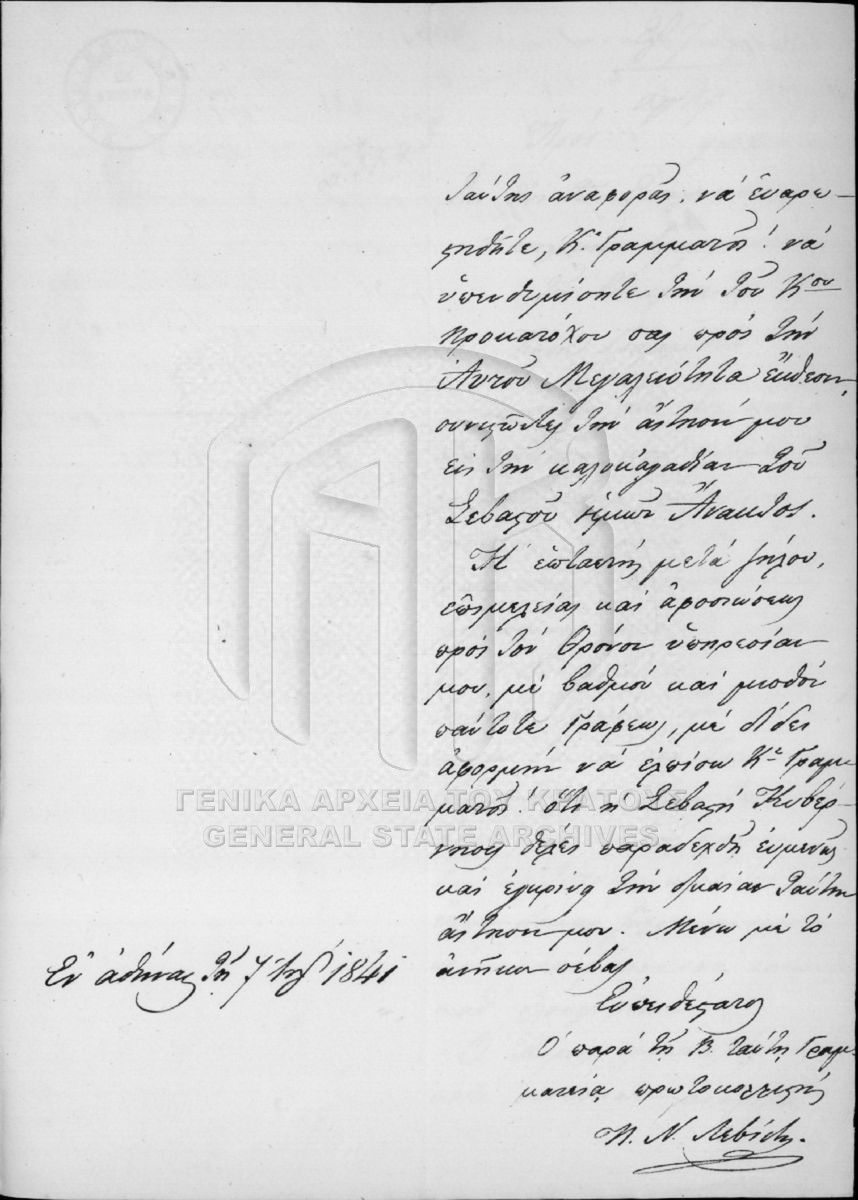 ταύτης ἀναφορᾶς· νὰ εὐαρε-
στηθῆτε, Κ. Γραμματεῦ! νὰ
ὑπενθυμίσητε τὴν τοῦ Κου
προκατόχου σας πρὸς τὴν
Αὐτοῦ Μεγαλειότητα ἔκθεσιν,
συνιστῶντες τὴν αἴτησίν μου
εἰς τὴν καλοκἀγαθίαν τοῦ
Σεβαστοῦ ἡμῶν Ἄνακτος.
Ἡ ἑπταετής μετὰ ζήλου,
ἐπιμελείας καὶ ἀφοσιώσεως
πρὸς τὸν Θρόνον ὑπηρεσίαν
μου, μὲ βαθμὸν καὶ μισθὸν
πάντοτε Γραφέως, μὲ δίδει
ἀφορμὴν νὰ ἐλπίσω Κε Γραμ-
ματεῦ! ὅτι ἡ Σεβαστὴ Κυβέρ-
νησις θέλει παραδεχθῆ εὐμενῶς
καὶ ἐγκρίνῃ τὴν δικαίαν ταύτην
αἴτησίν μου. Μένω μὲ τὸ
ἀνῆκον σέβας
Ἐν Ἀθήναις τῇ 7 1841
Εὐπειθέστατος
Ὁ παρὰ τῇ Β. ταύτῃ Γραμ-
ματείᾳ πρωτοκολλιστής
Ν. Λεβίδης.
ΓΕΝΙΚΑ ΑΡΧΕΙΑ ΤΟΥ ΚΡΑΤΟΥΣ
GENERAL STATE ARCHIVES